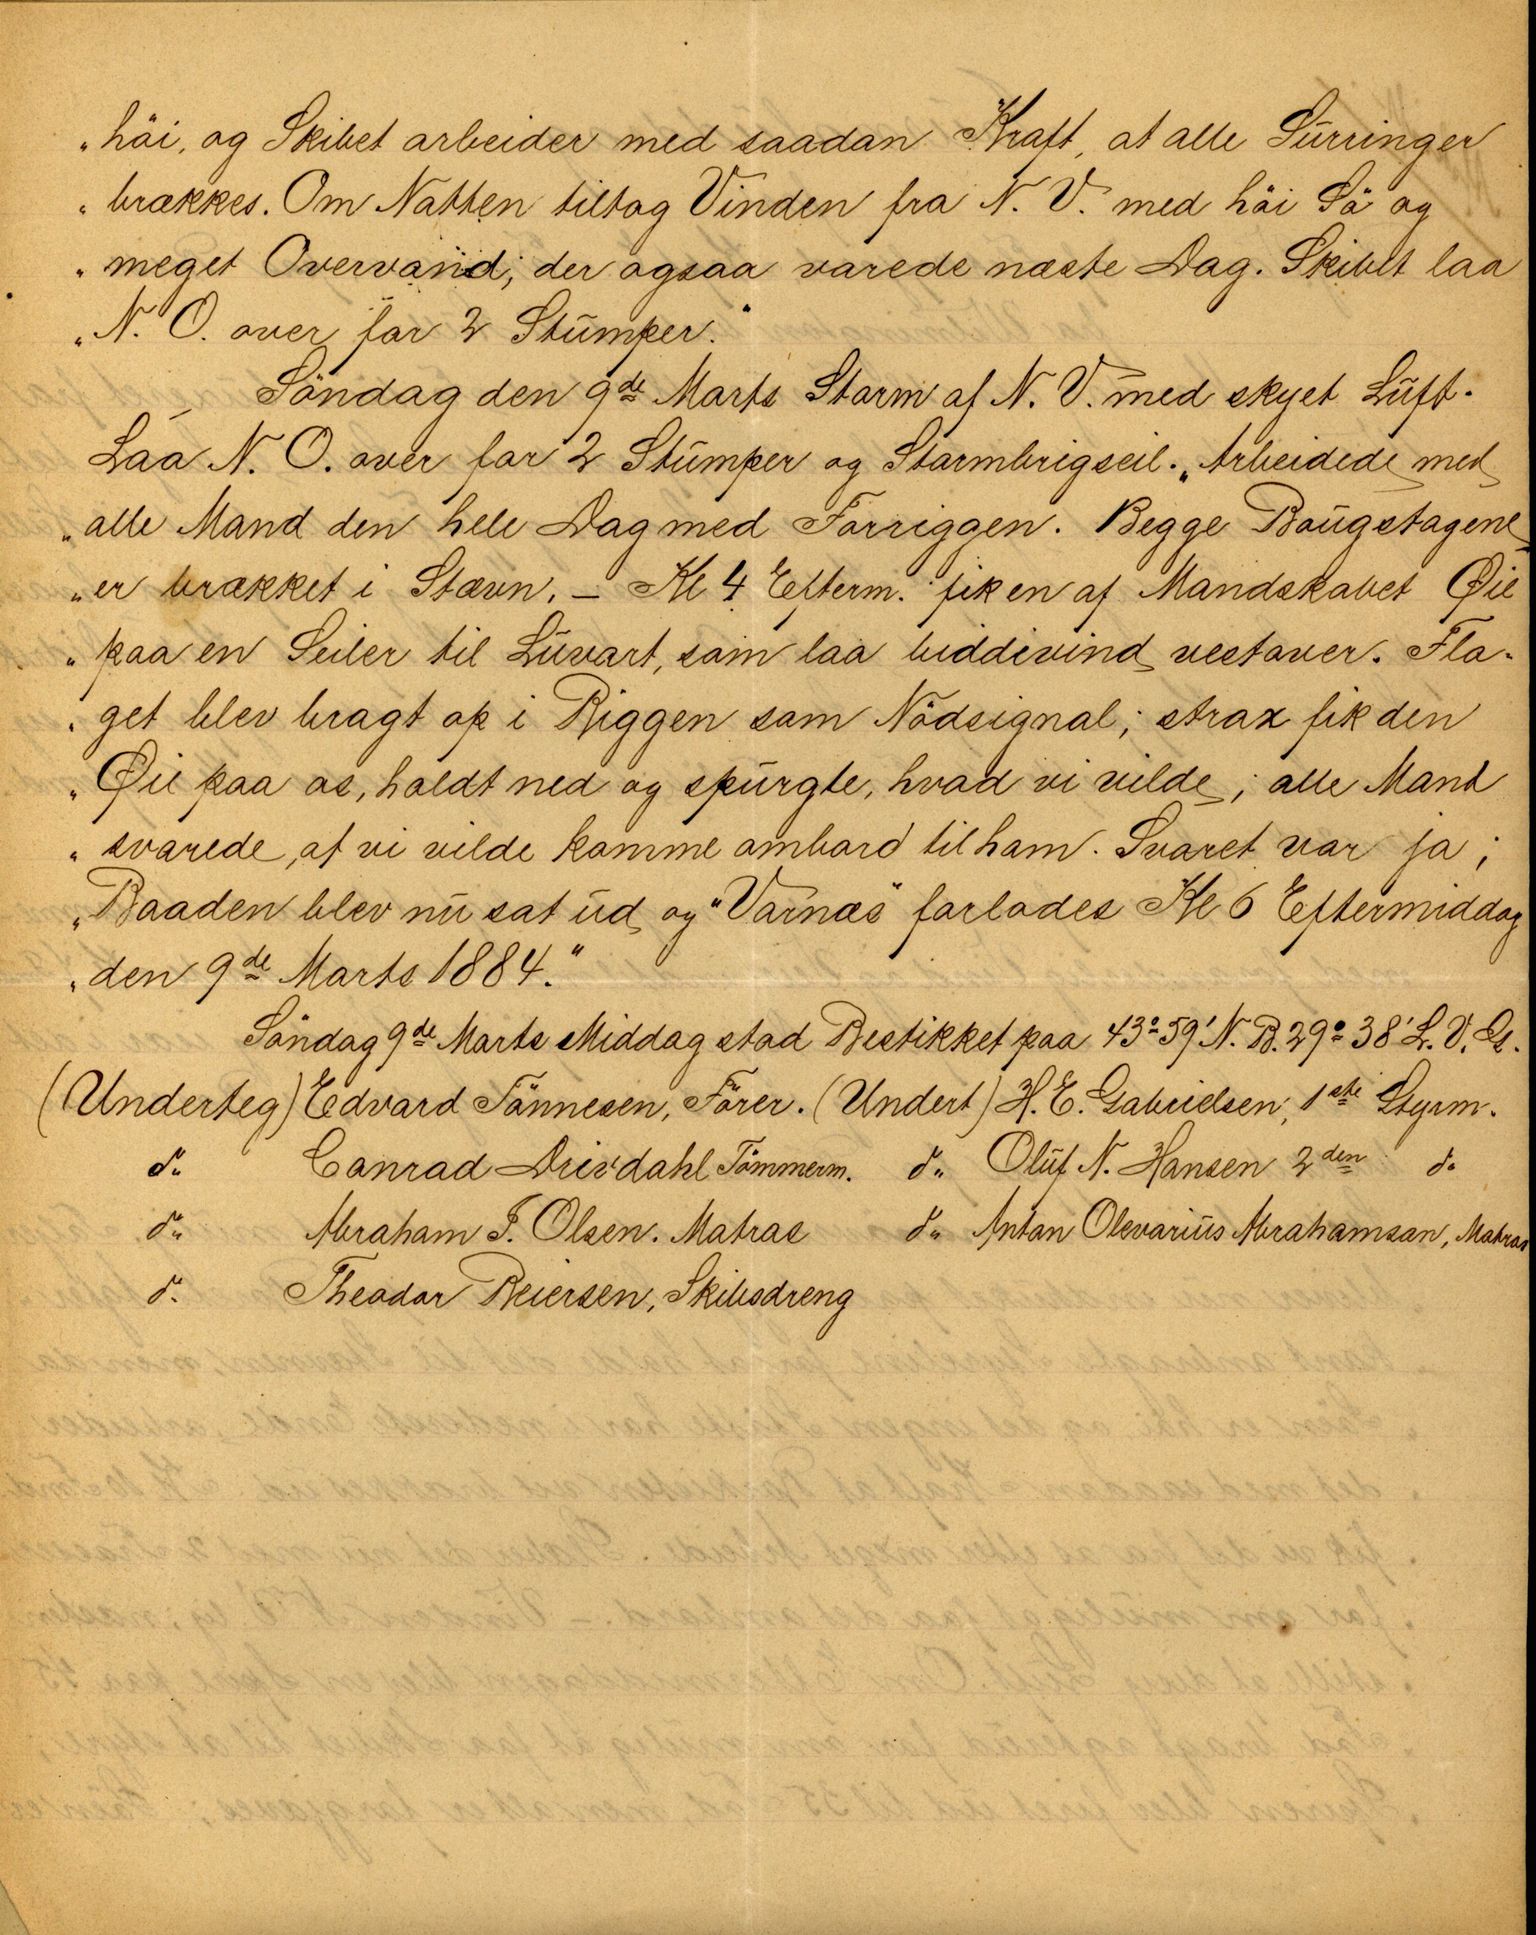 „ høi, og Skibet arbeider med saadan Kraft, at alle Surringer
„ brækkes. Om Natten tiltog Vinden fra N. V. med høi Sø og
„ meget Overvand; der ogsaa varede næste Dag. Skibet laa
„ N. O. over for 2 Stumper."
Søndag den 9de Marts Storm af N. V. med skyet Luft.
Laa N. O. over for 2 Stumper og Stormbrigseil. „Arbeidede med
„ alle Mand den hele Dag med Forriggen. Begge Bougstagene
„ er brækket i Stævn. — Kl 4 Efterm. fik en af Mandskabet Øie
„ paa en Seiler til Luvart, som laa biddivind vestover. Fla-
„ get blev bragt op i Riggen som Nødsignal; strax fik den
„ Øie paa os, holdt ned og spurgte, hvad vi vilde; alle Mand
„ svarede, at vi vilde komme ombord til ham. Svaret var ja;
„ Baaden blev nu sat ud og "Varnæs" forlodes Kl 6 Eftermiddag
„ den 9de Marts 1884."
Søndag 9de Marts Middag stod Bestikket paa 43° 59' N. B. 29° 38' L. V. G.
(Underteg) Edvard Tönnesen, Förer. (Undert) H. E. Gabrielsen, 1ste Styrm.
do Conrad Drivdahl Tömmerm. do Oluf N. Hansen 2den do
do Abraham T. Olsen. Matros do Anton Olevarius Abrahamson, Matros
do Theodor Reiersen, Skibsdreng